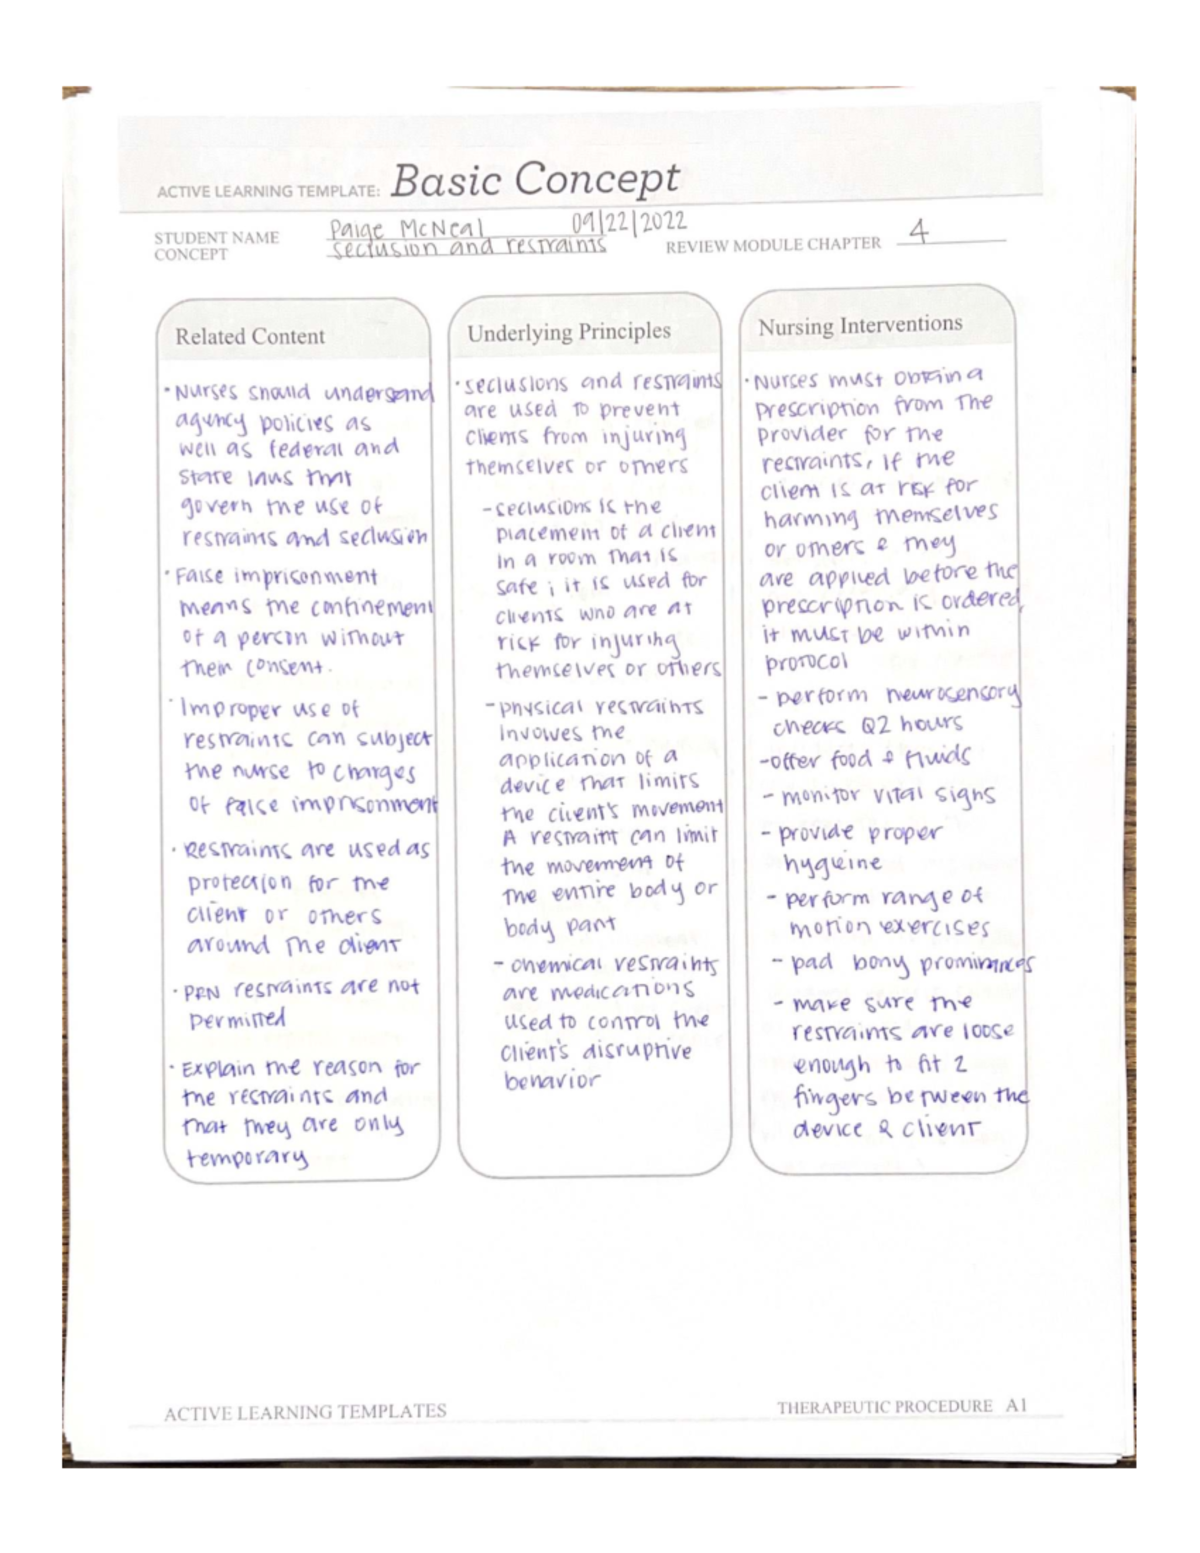 ACTIVE LEARNING TEMPLATE: Basic Concept
STUDENT NAME Paige McNeal 09/22/2022
CONCEPT seclusion and restraints REVIEW MODULE CHAPTER 4
Related Content
· Nurses should understand
agency policies as
well as federal and
state laws that
govern the use of
restraints and seclusion
· False imprisonment
means the confinement
of a person without
their consent.
· Improper use of
restraints can subject
the nurse to charges
of false imprisonment
· Restraints are used as
protection for the
client or others
around the client
· PRN restraints are not
permitted
· Explain the reason for
the restraints and
that they are only
temporary
Underlying Principles
· seclusions and restraints
are used to prevent
clients from injuring
themselves or others
- seclusions is the
placement of a client
in a room that is
safe ; it is used for
clients who are at
risk for injuring
themselves or others
- physical restraints
involves the
application of a
device that limits
the client's movement
A restraint can limit
the movement of
the entire body or
body part
- chemical restraints
are medications
used to control the
client's disruptive
behavior
Nursing Interventions
· Nurses must obtain a
prescription from the
provider for the
restraints, if the
client is at risk for
harming themselves
or others & they
are applied before the
prescription is ordered,
it must be within
protocol
- perform neurosensory
checks Q2 hours
- offer food & fluids
- monitor vital signs
- provide proper
hygieine
- perform range of
motion exercises
- pad bony prominences
- make sure the
restraints are loose
enough to fit 2
fingers between the
device & client
ACTIVE LEARNING TEMPLATES THERAPEUTIC PROCEDURE A1